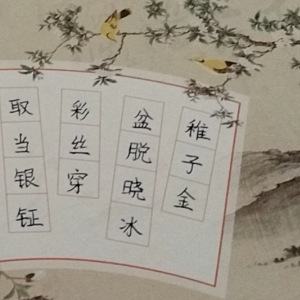 稚子金
盆脱晓冰
彩丝穿
取当银钲